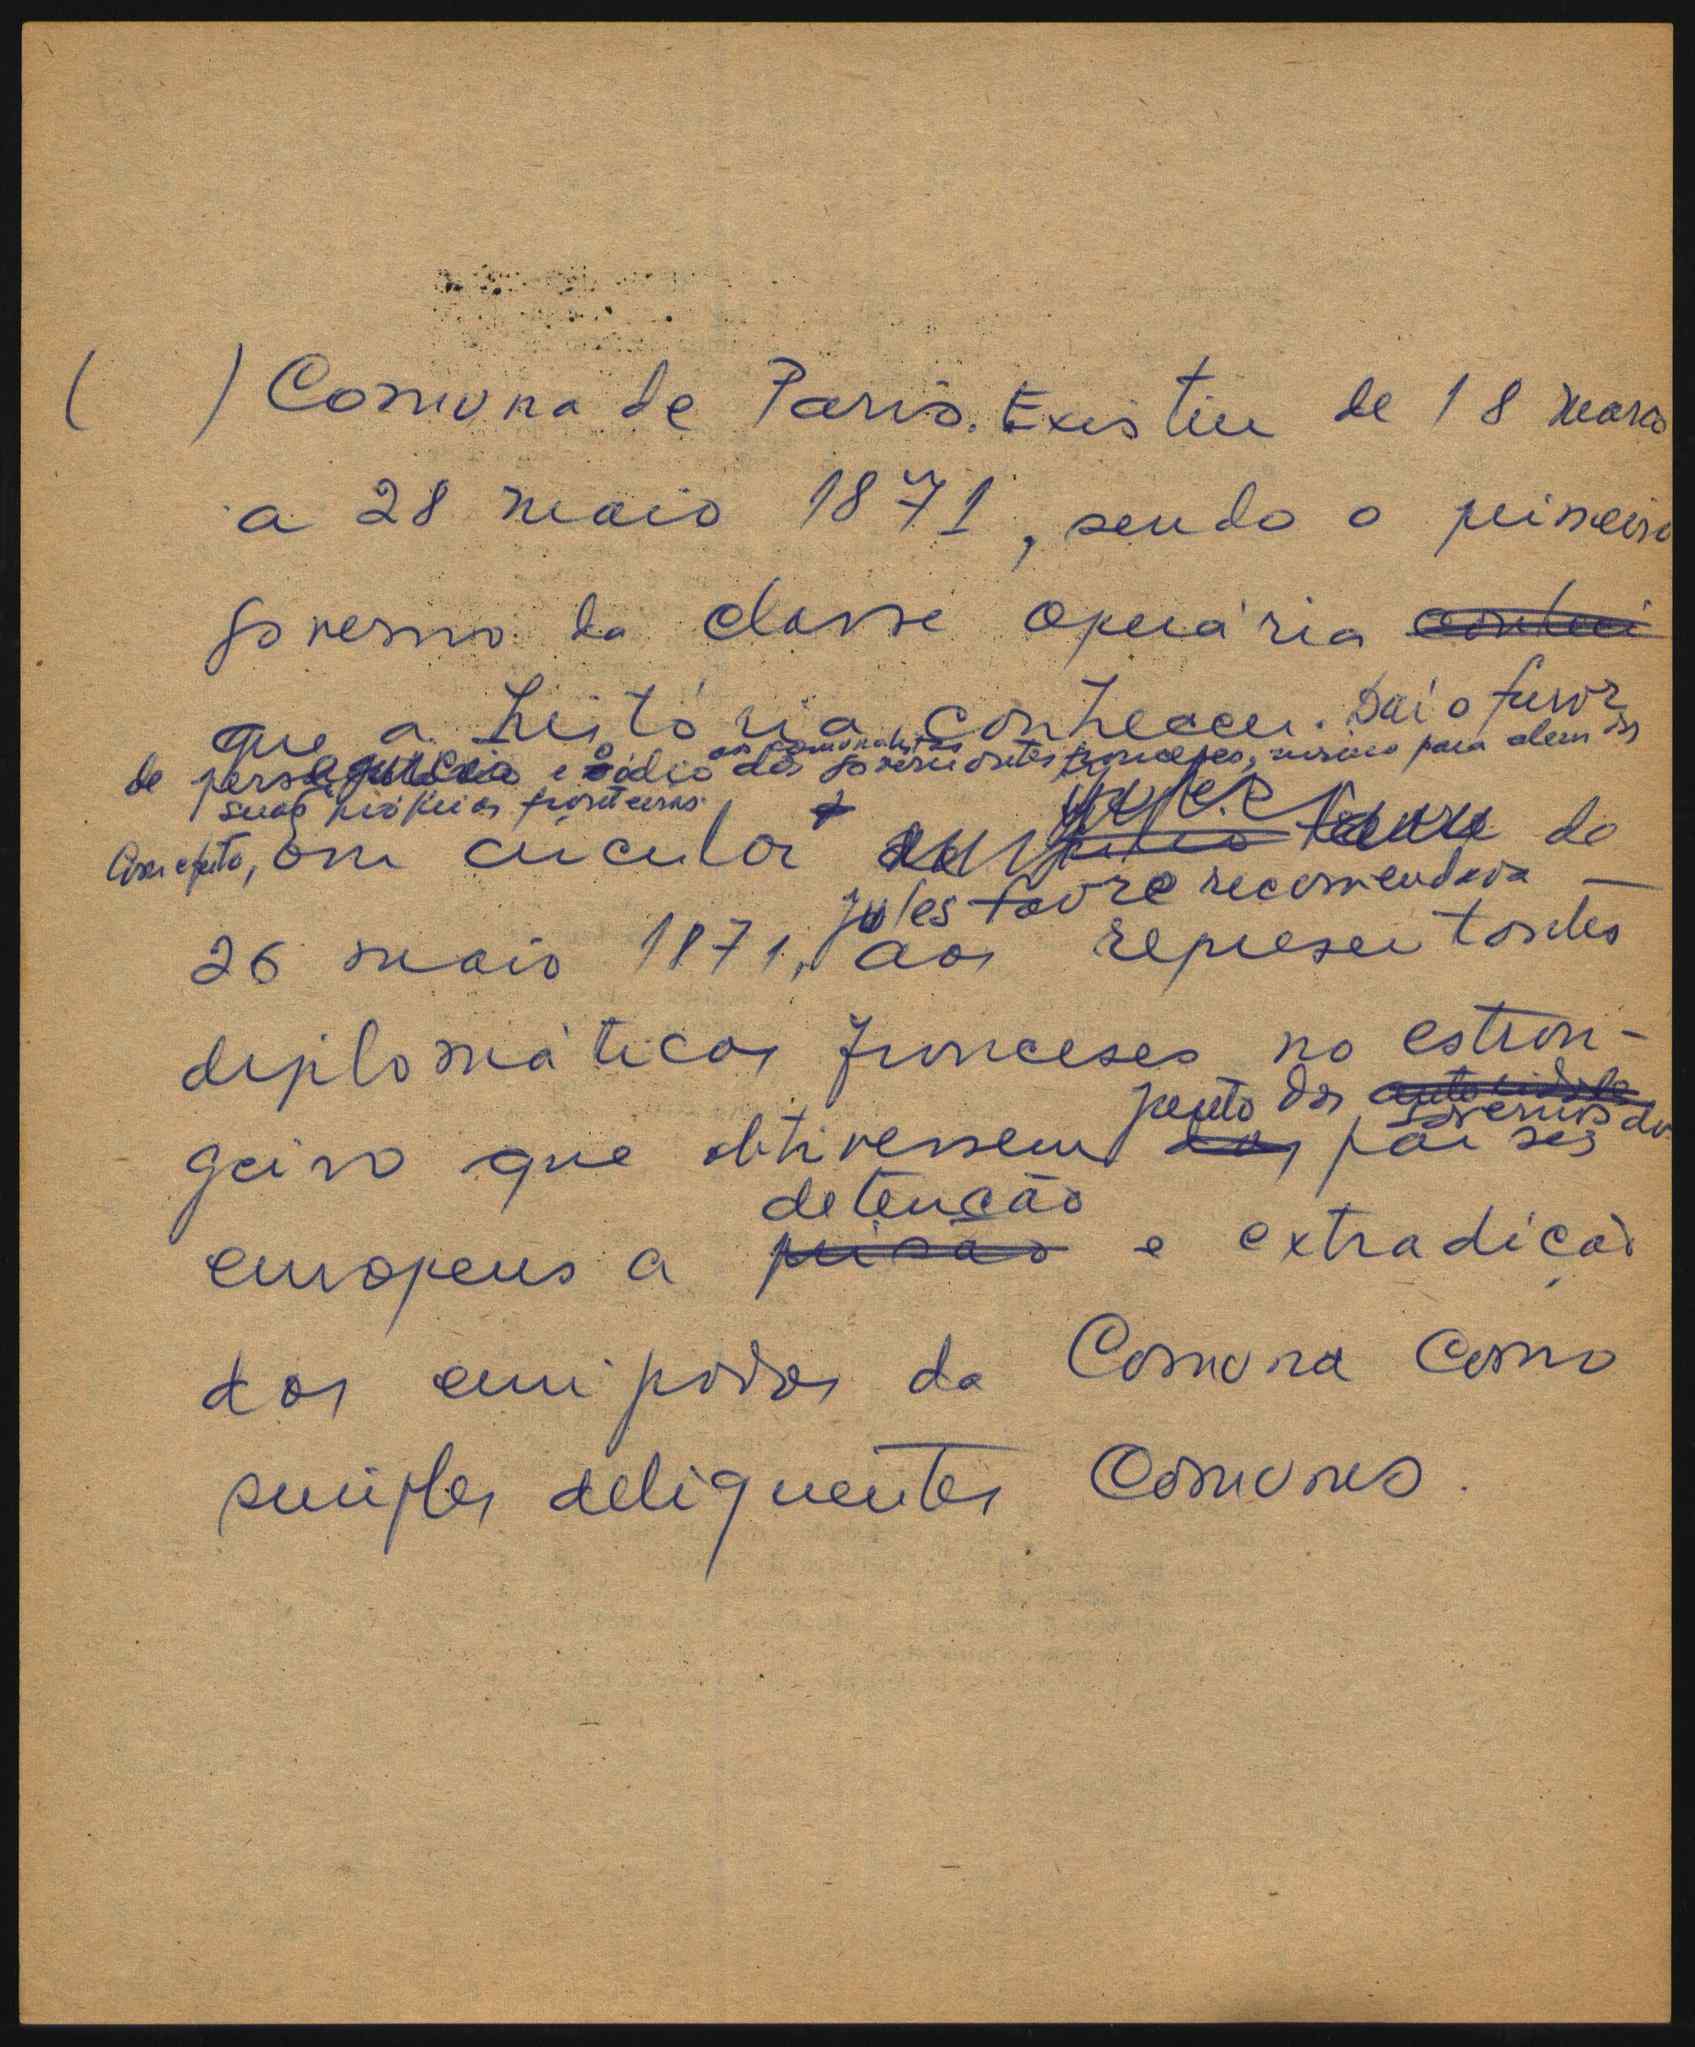 ( ) Comuna de Paris. Existiu de 18 março
a 28 maio 1871, sendo o primeiro
governo da classe operária
que a história conheceu. Daí o furor
de perseguição e o ódio aos comunalistas dos governantes franceses, mesmo para alem das
suas próprias fronteiras.
Com efeito, em circular de
Jules Favre recomendava
26 maio 1871, aos representantes
diplomáticos franceses no estran-
junto dos governos dos
geiro que obtivessem países
detenção
europeus a prisão e extradição
dos emigrados da Comuna como
simples deliquentes comuns.